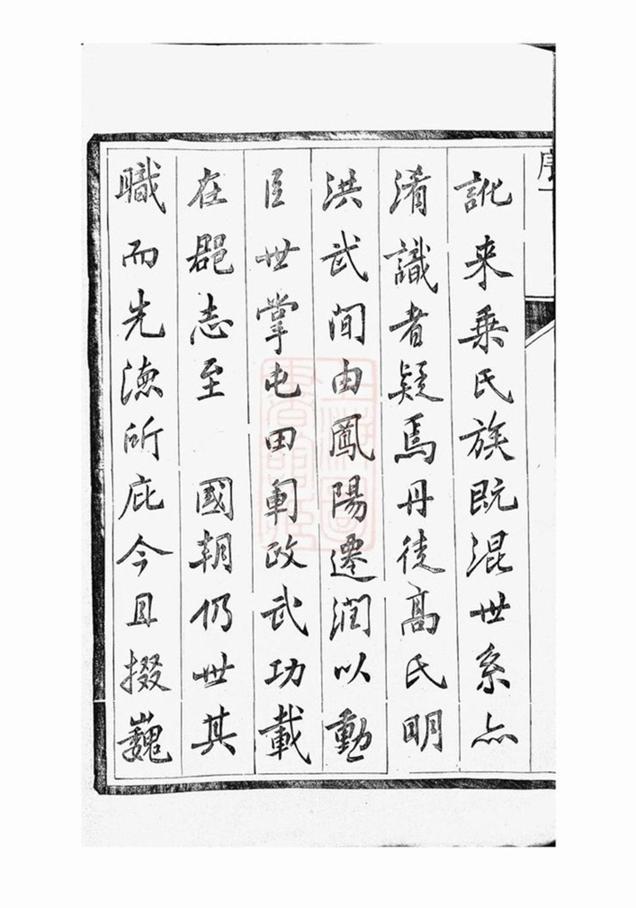 序一
訛来乗氏族既混世系亦
淆識者疑焉丹徒髙氏明
洪武间由鳳陽遷润以勳
臣世掌屯田軍政武功載
在郡志至　國朝仍世其
職而先徳所庇今且掇巍